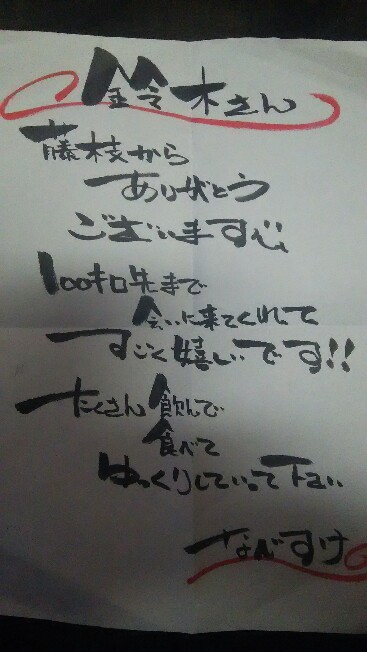 鈴木さん
藤枝から
ありがとう
ございます
100キロ先まで
会いに来てくれて
すごく嬉しいです!!
たくさん飲んで
食べて
ゆっくりしていって下さい
なんすけ